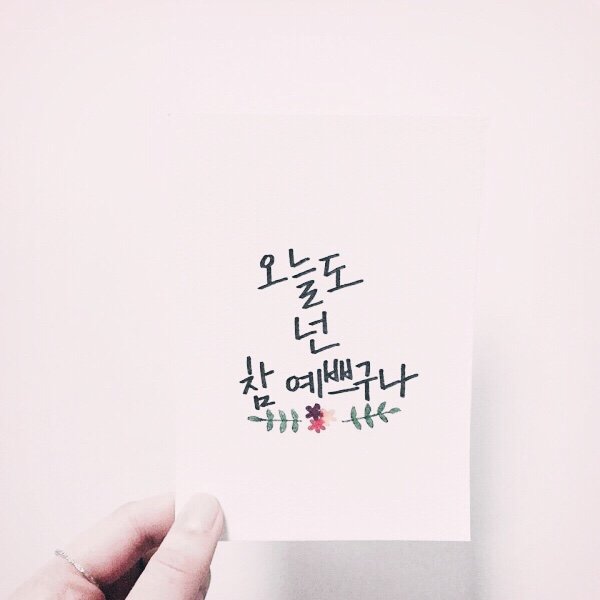 오늘도
넌
참 예쁘구나